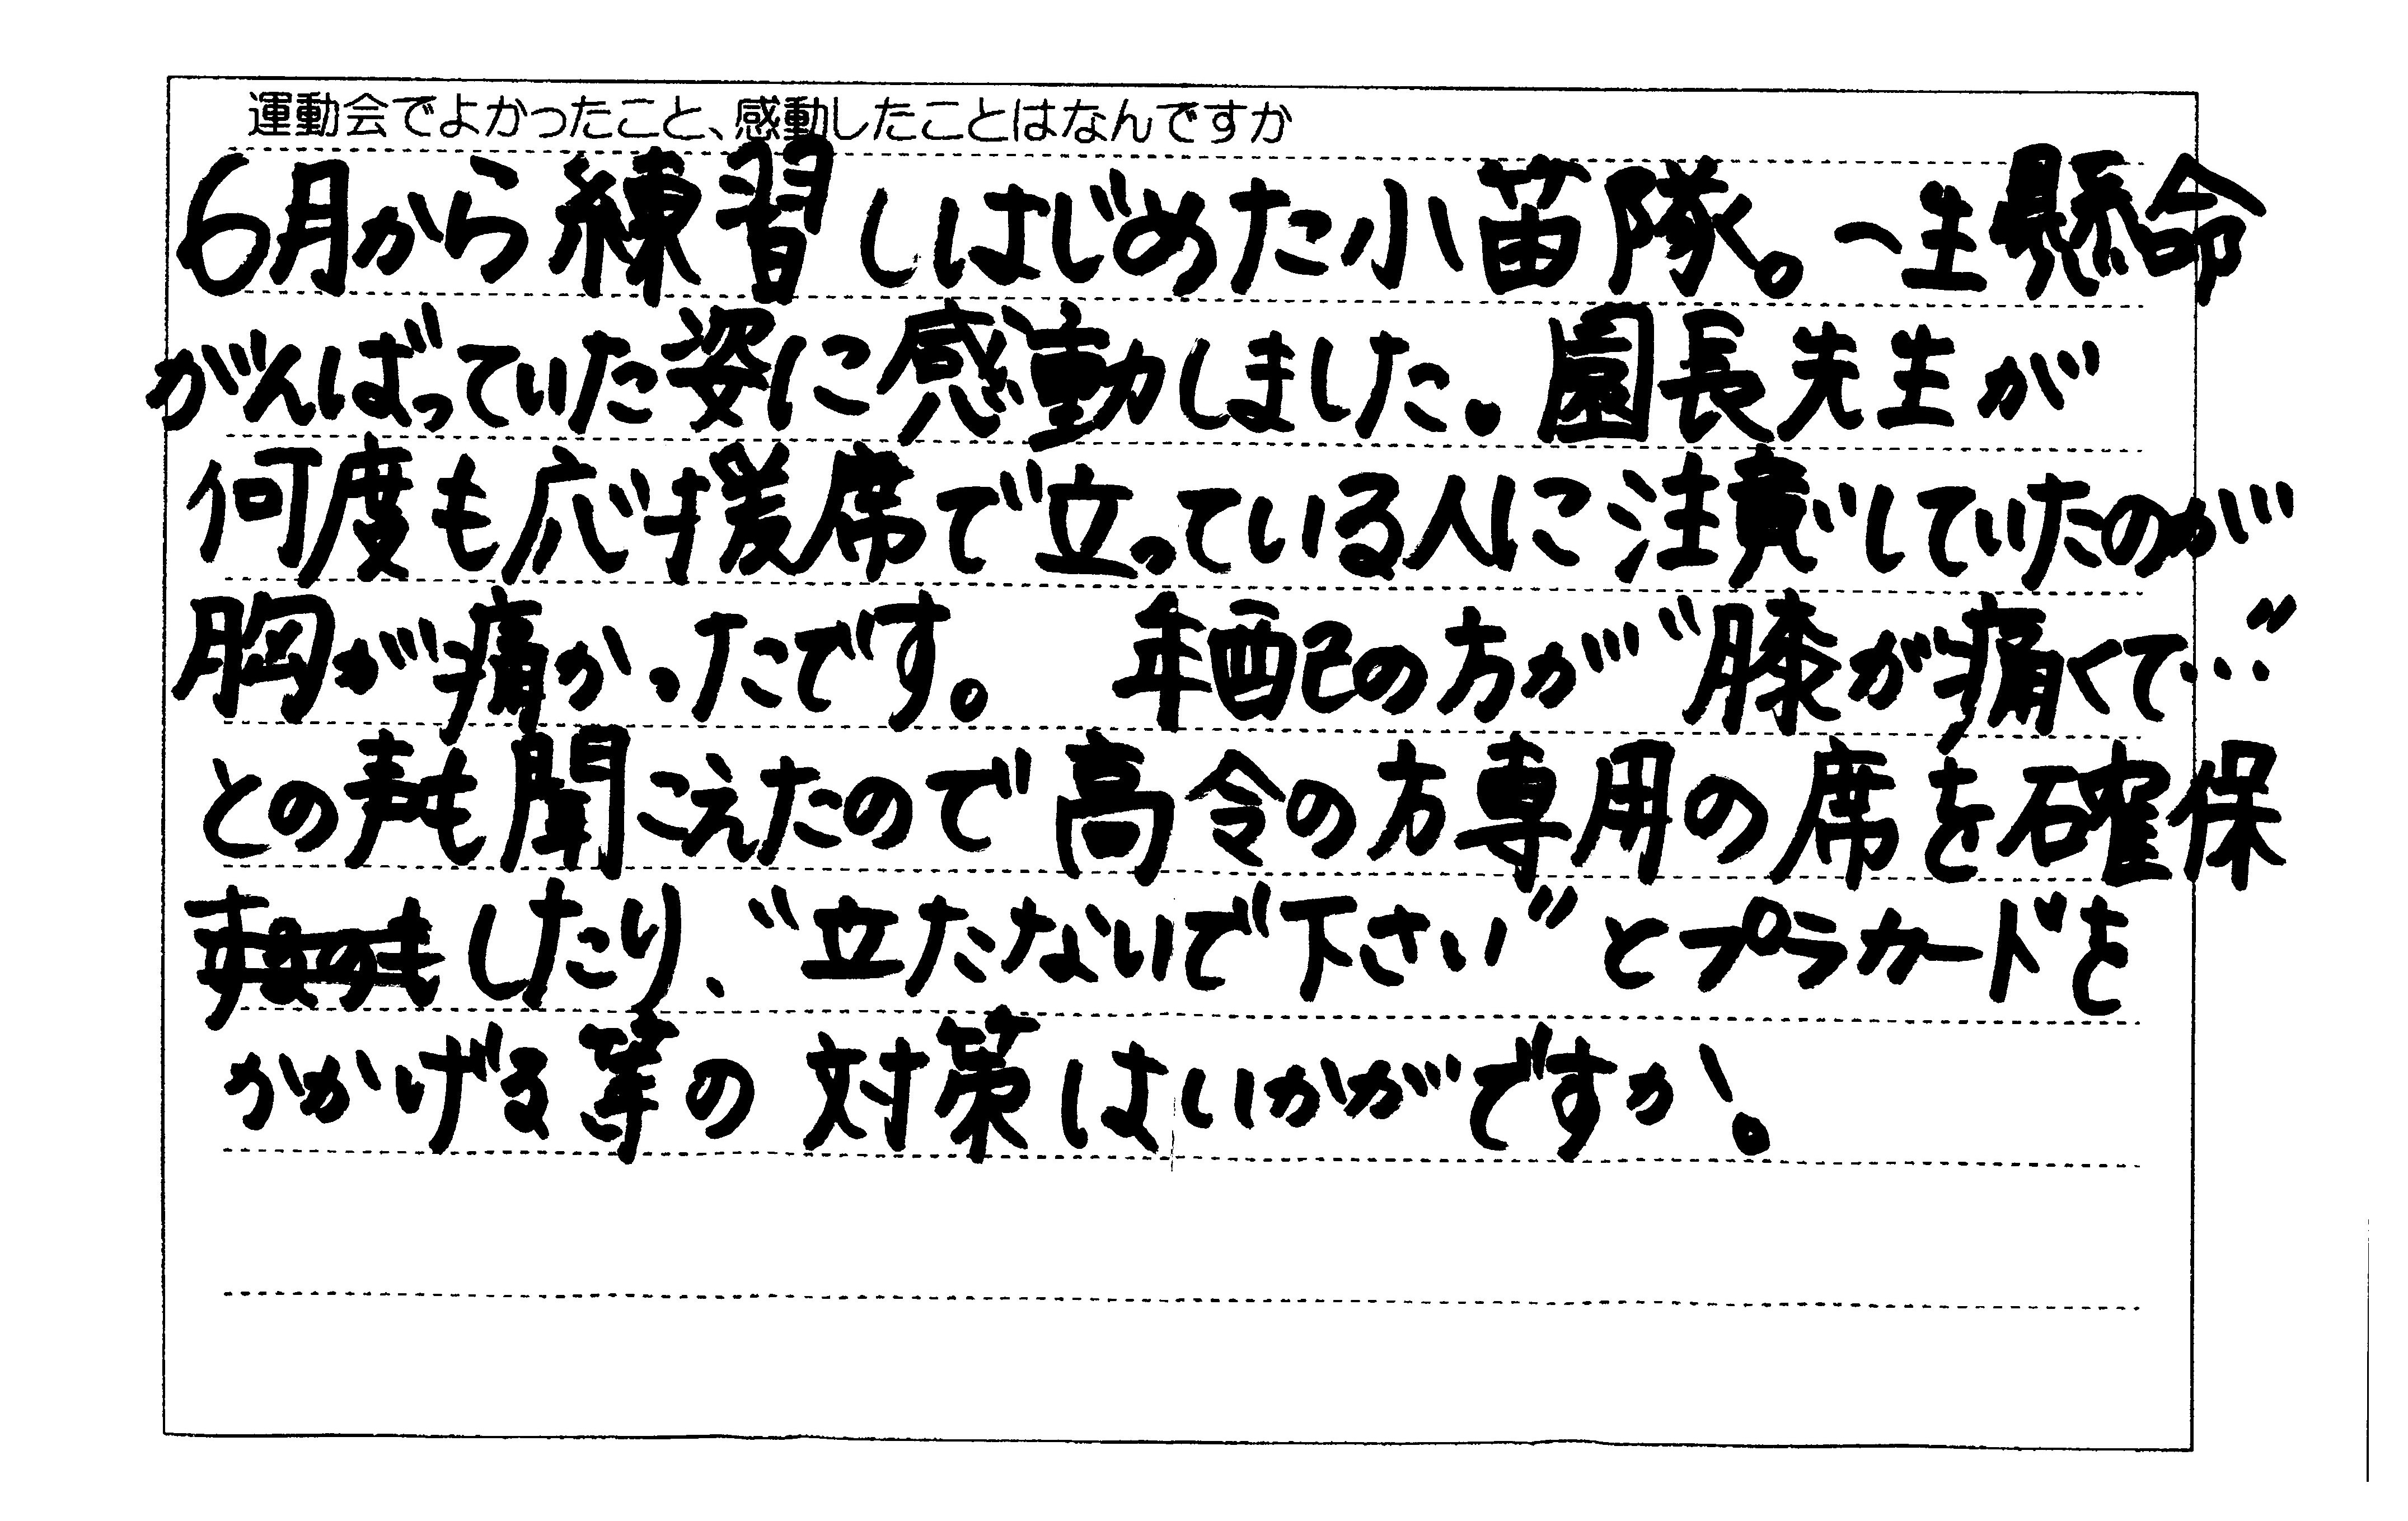 運動会でよかったこと、感動したことはなんですか
6月から練習しはじめた小笛隊。一生懸命
がんばっていた姿に感動しました。園長先生が
何度も応援席で立っている人に注意していたのが
胸が痛かったです。 年配の方が“膝が痛くて…”
との声も聞こえたので高令の方専用の席を確保
したり、“立たないで下さい”とプラカードを
かかげる等の対策はいかがですか。